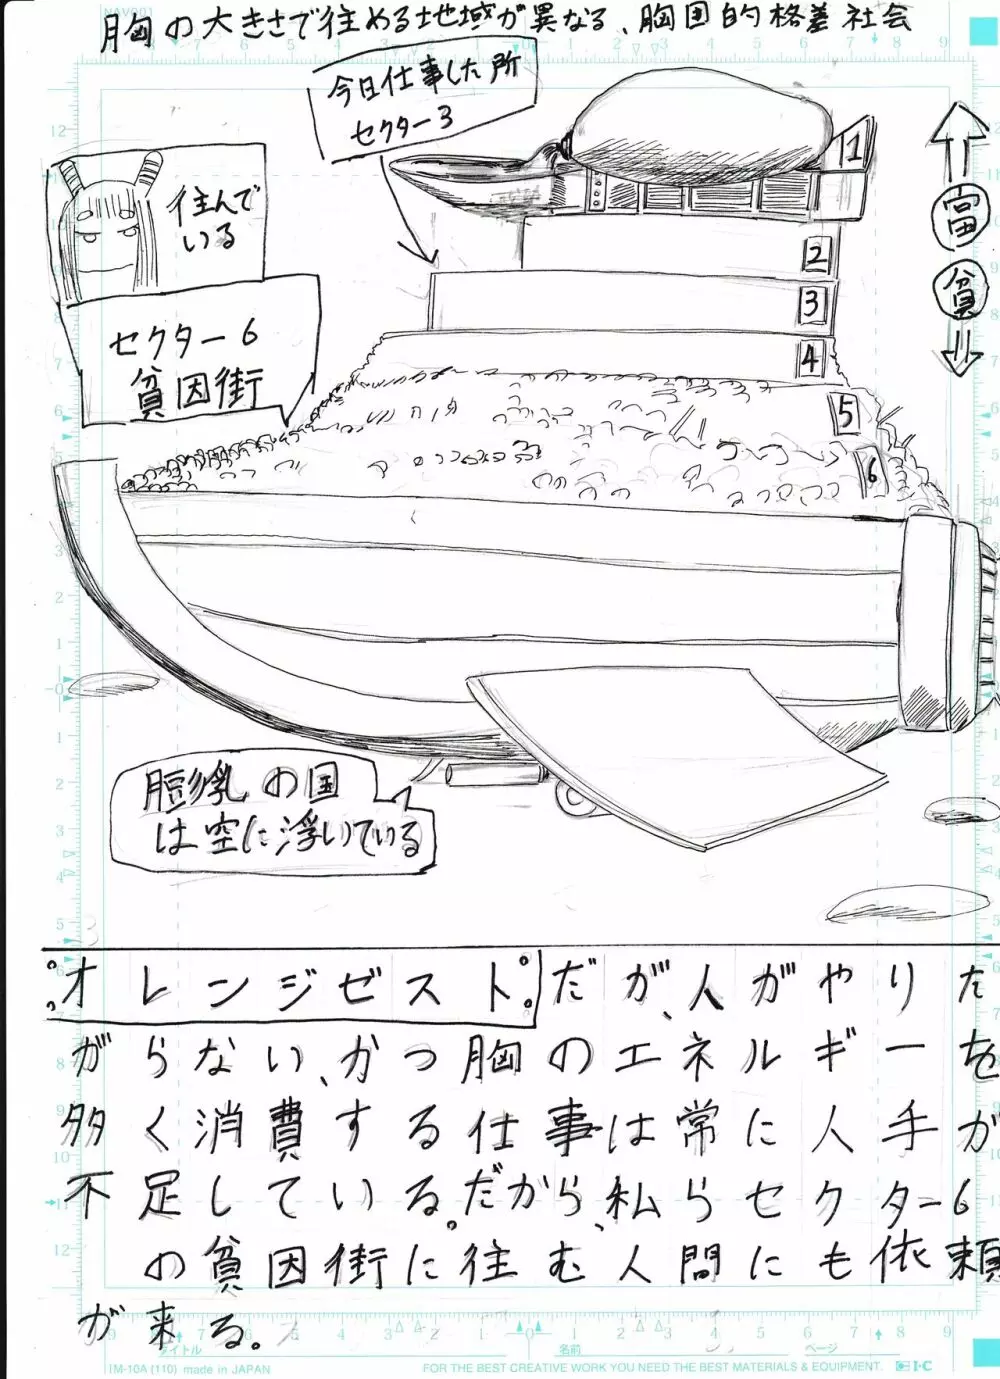 胸の大きさで住める地域が異なる、胸囲的格差社会
今日仕事した所
セクター3
住んで
いる
セクター6
貧困街
1
2
3
4
5
6
富
貧
膨乳の国
は空に浮いている
オレンジゼスト。だが、人がやりた
がらない、かつ胸のエネルギーを
多く消費する仕事は常に人手が
不足している。だから、私らセクター6
の貧困街に住む人間にも依頼
が来る。
タイトル
名前
ページ
IM-10A (110) made in JAPAN
FOR THE BEST CREATIVE WORK YOU NEED THE BEST MATERIALS & EQUIPMENT.
I·C